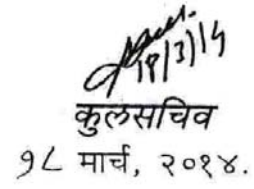 18/3/14
कुलसचिव
१८ मार्च, २०१४.